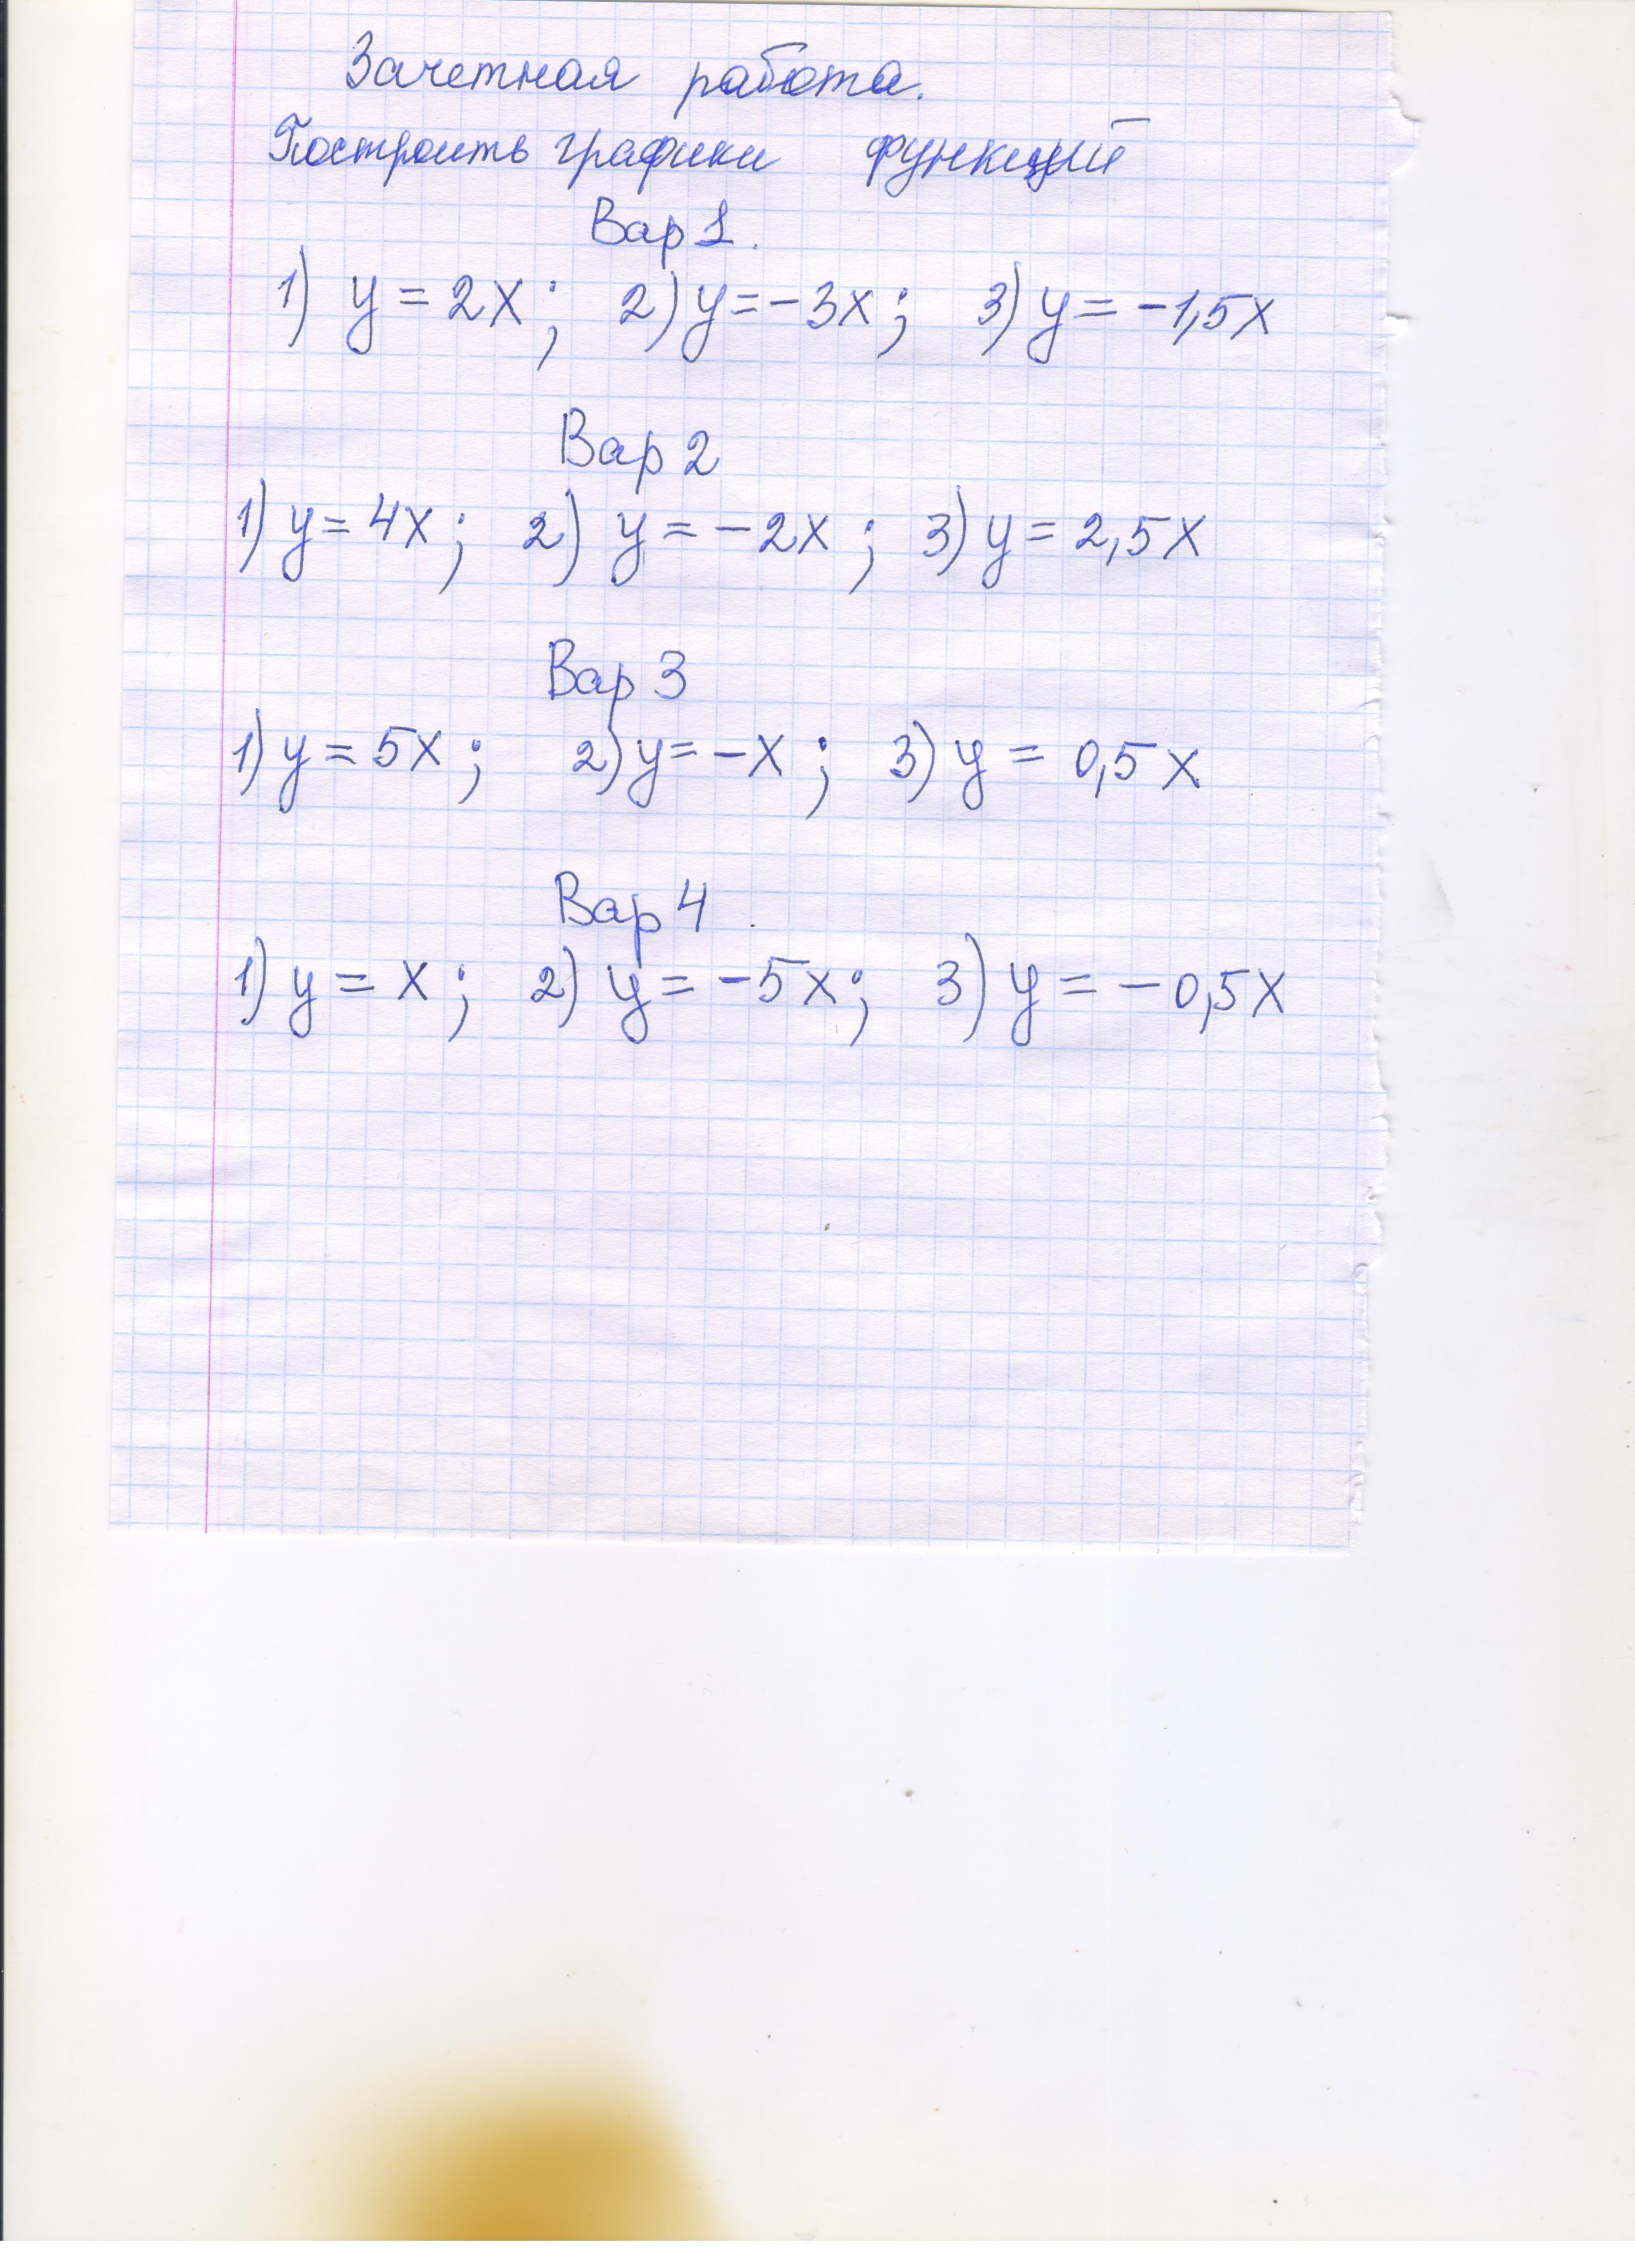 Зачетная работа.
Построить графики функций
Вар 1.
1) y = 2x; 2) y = -3x; 3) y = -1,5x
Вар 2
1) y = 4x; 2) y = -2x; 3) y = 2,5x
Вар 3
1) y = 5x; 2) y = -x; 3) y = 0,5x
Вар 4
1) y = x; 2) y = -5x; 3) y = -0,5x